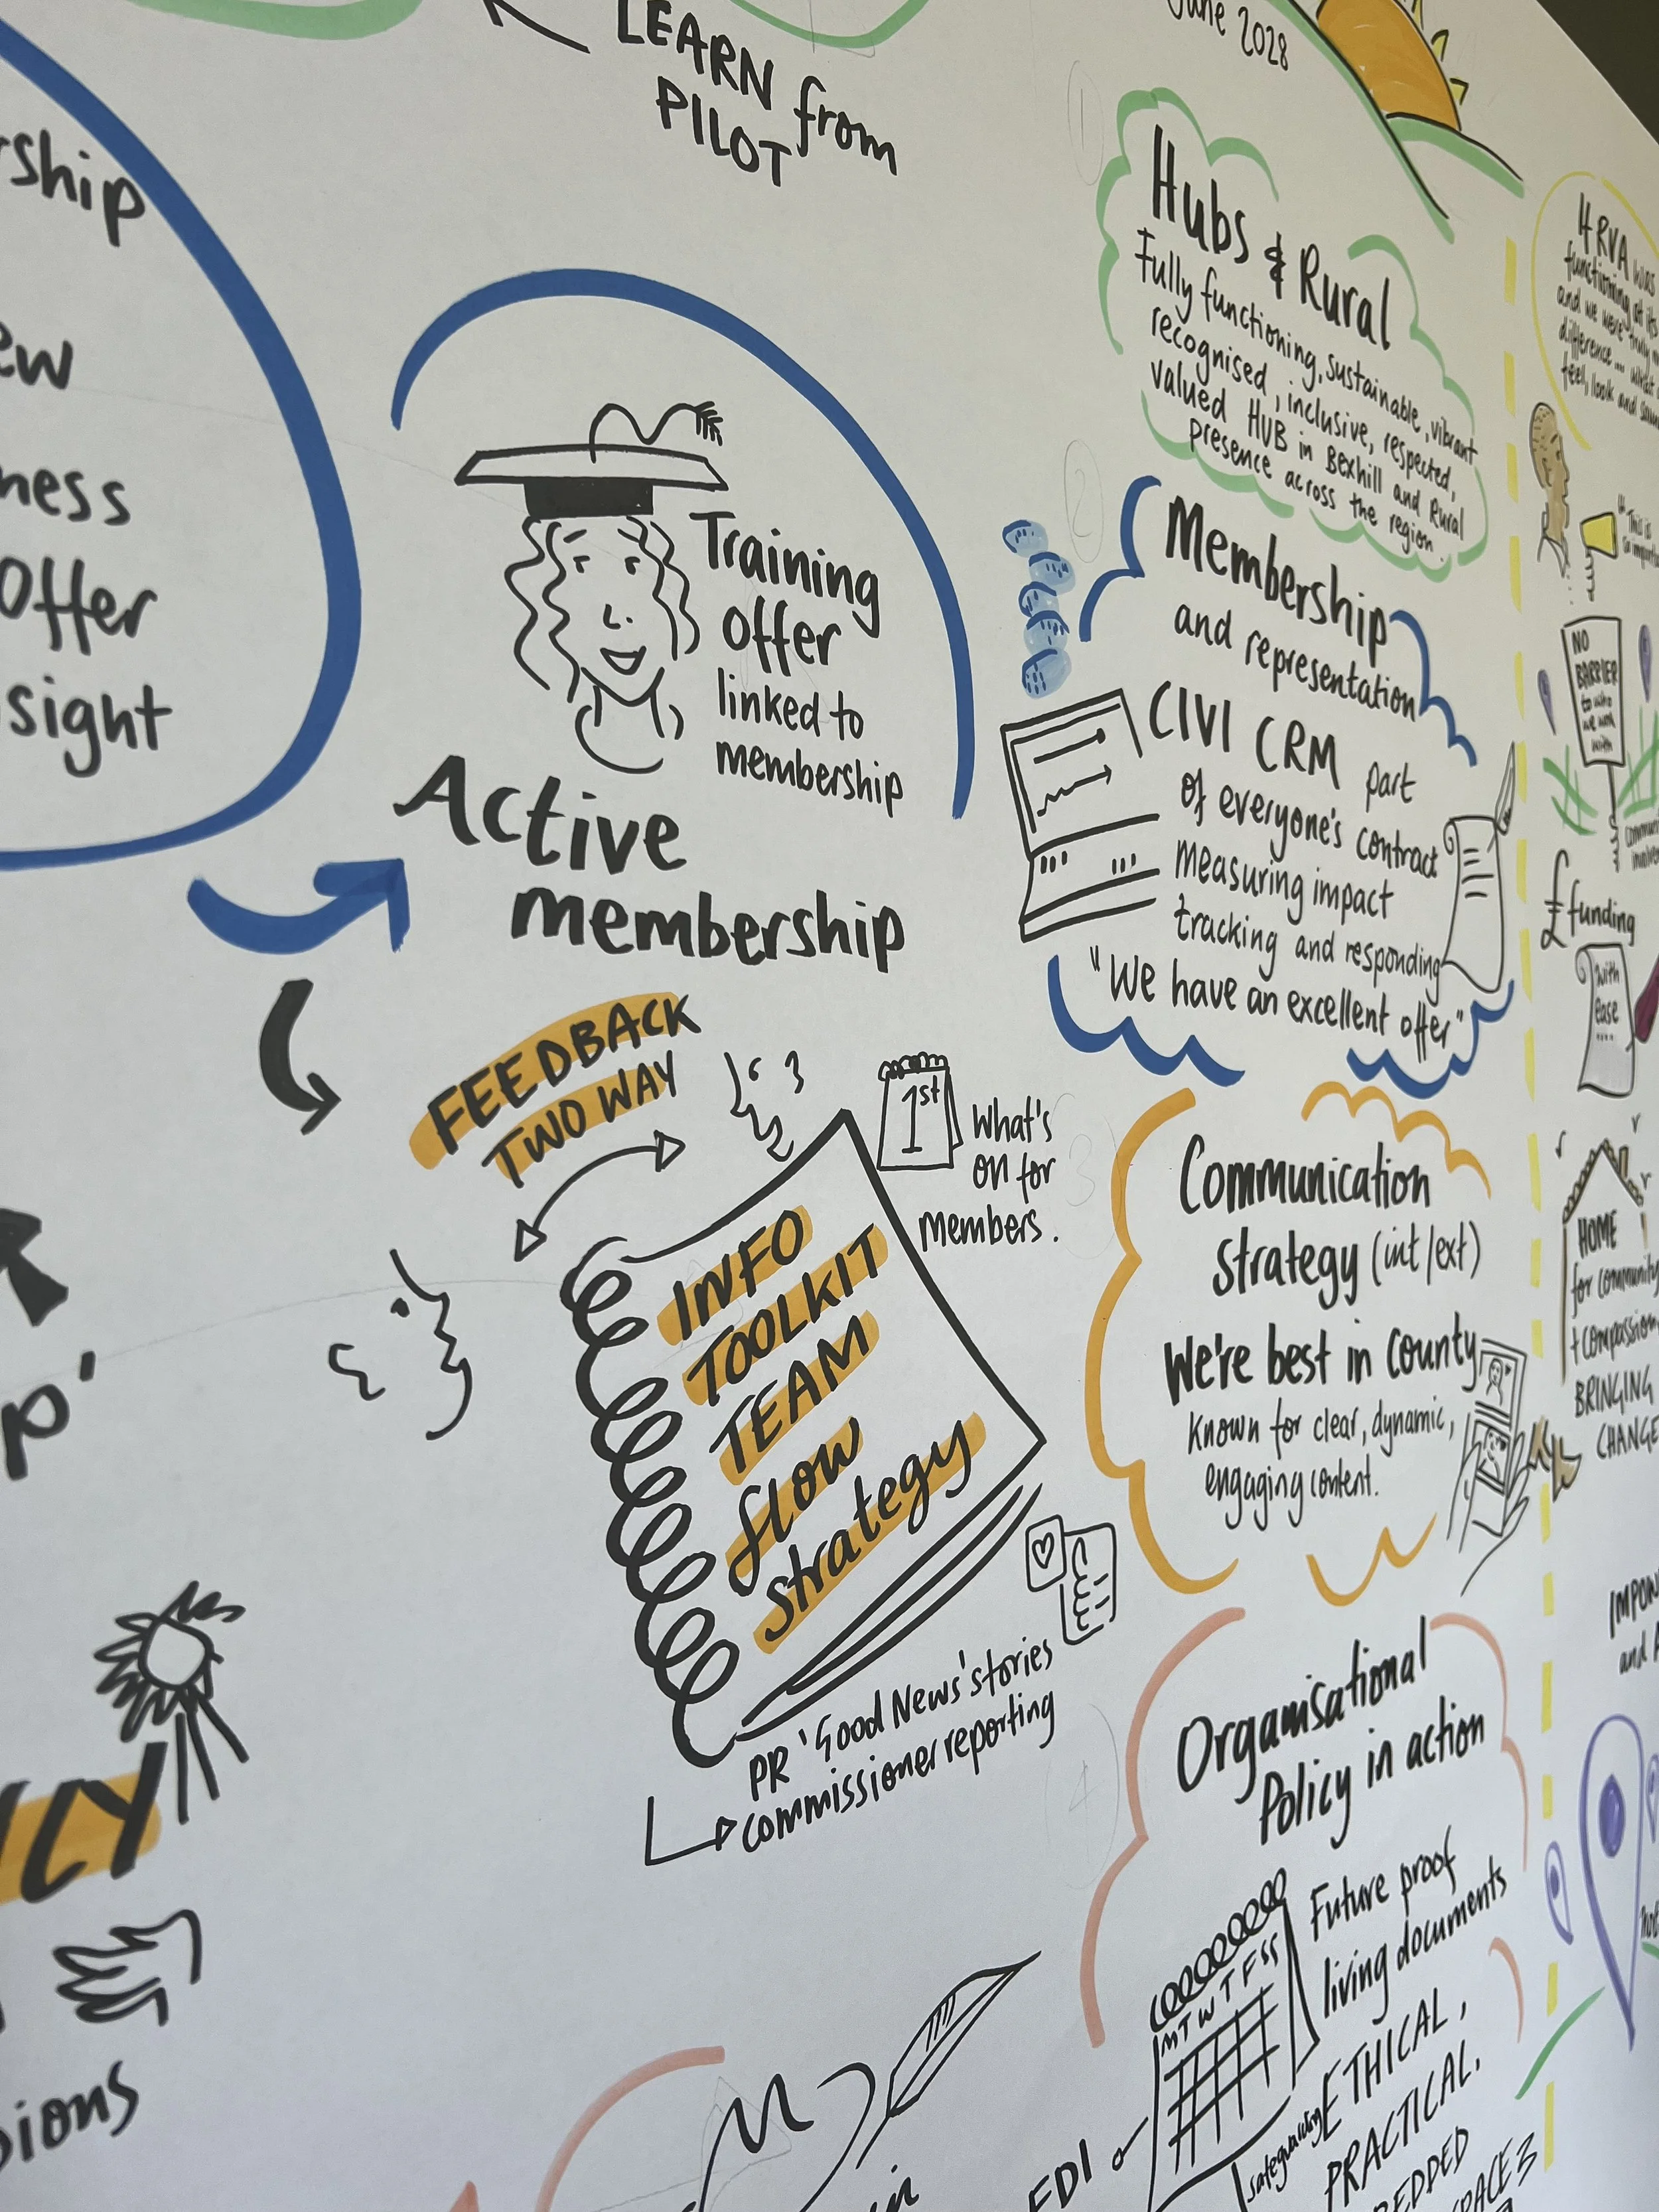 LEARN from
PILOT
June 2028
Hubs & Rural
Fully functioning, sustainable, vibrant
recognised, inclusive, respected,
valued HUB in Bexhill and Rural
presence across the region.
Membership
and representation
CIVI CRM part
of everyone's contract
measuring impact
tracking and responding
"We have an excellent offer"
Communication
strategy (int/ext)
We're best in county
Known for clear, dynamic,
engaging content.
Organisational
Policy in action
Future proof
living documents
M T W T F S S
ETHICAL,
PRACTICAL.
safeguarding
EDI
Training
offer
linked to
membership
Active
membership
FEEDBACK
TWO WAY
1st
What's
on for
members.
INFO
TOOLKIT
TEAM
flow
strategy
PR 'Good News' stories
commissioner reporting
rship
ew
ness
Offer
sight
p'
CY
sions
HRVA was
functioning at its
and we were truly
difference... what
feel, look and
"This is
NO
BARRIER
to who
we work
with
£ funding
with
ease
....
HOME
for community
+ compassion
BRINGING
CHANGE